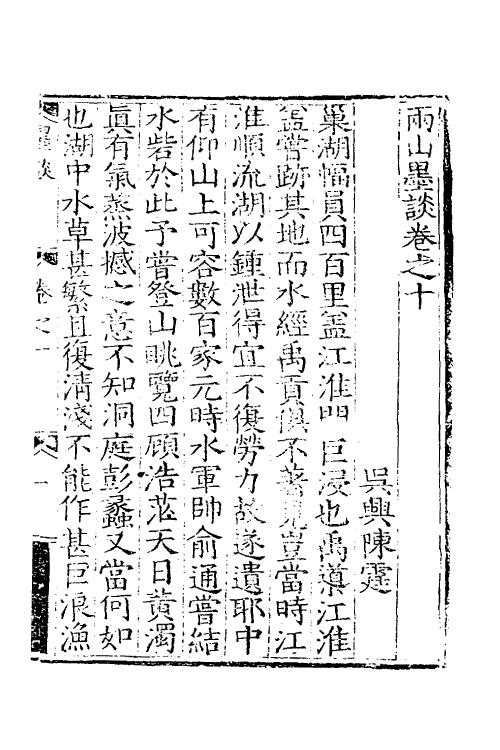 兩山墨談卷之十
吳興陳霆
巢湖幅員四百里盖江淮門巨浸也禹導江淮
盖嘗跡其地而水經禹貢俱不著見豈當時江
淮順流湖以鍾泄得宜不復勞力故遂遺耶中
有仰山上可容數百家元時水軍帥俞通嘗結
水砦於此予嘗登山眺覽四顧浩茫天日黄濁
真有氣蒸波撼之意不知洞庭彭蠡又當何如
也湖中水草甚繁且復清淺不能作甚巨浪漁
墨談
卷之十
一